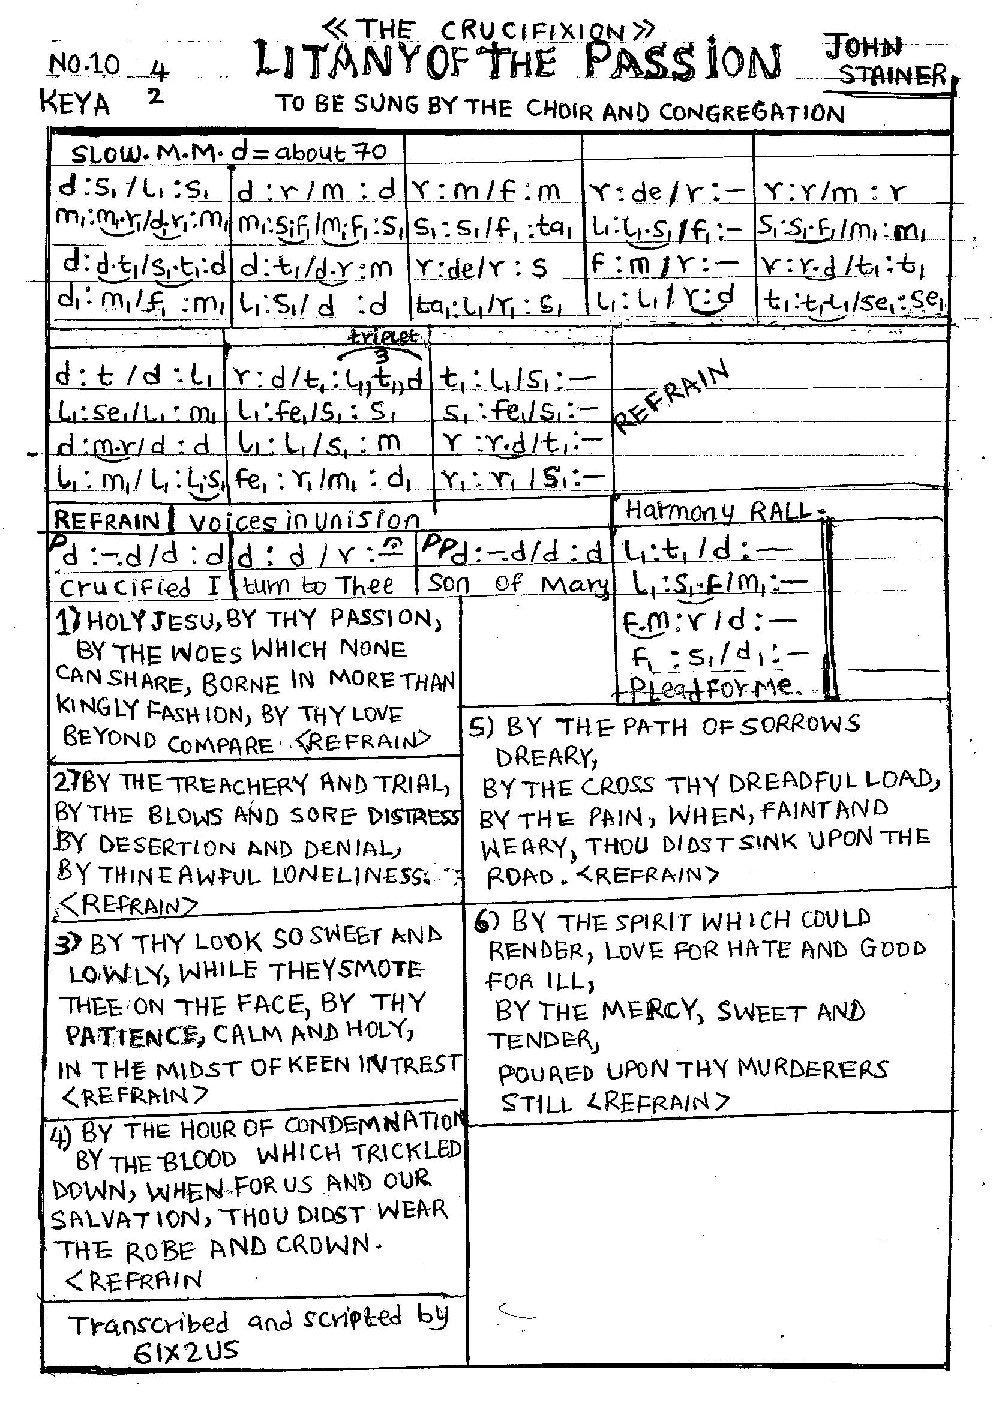 ≪ THE CRUCIFIXION ≫
NO.10 4/2 LITANY OF THE PASSION JOHN STAINER
KEY A TO BE SUNG BY THE CHOIR AND CONGREGATION
SLOW. M.M. d = about 70
d :S₁ / L₁ :S₁ | d : r / m : d | r : m / f : m | r : de / r : – | r : r / m : r
m₁:m₁.r₁/d₁.r₁:m₁ | m₁:S₁.f₁/m₁.f₁:S₁ | S₁ : S₁ / f₁ : ta₁ | L₁:L₁.S₁/f₁:– | S₁:S₁.f₁/m₁:m₁
d:d.t₁/S₁.t₁:d | d:t₁/d.r:m | r:de/r : s | f : m / r : – | r:r.d/t₁:t₁
d₁:m₁/f₁ :m₁ | L₁:S₁/d :d | ta₁:L₁/r₁:S₁ | L₁:L₁/r:d | t₁:t₁.L₁/se₁:se₁
triplet
3
d : t / d : L₁ | r : d / t₁ : L₁,t₁,d | t₁ : L₁/S₁ : – | REFRAIN
L₁:se₁/L₁:m₁ | L₁:fe₁/S₁ : S₁ | S₁ :fe₁/S₁:–
d :m.r/d : d | L₁ : L₁/S₁ : m | r :r.d/t₁:–
L₁ : m₁/L₁:L₁.S₁ | fe₁ : r₁/m₁ : d₁ | r₁ : r₁ /S₁:–
REFRAIN | voices in unision | Harmony RALL.
P d :–.d/d : d | d : d / r : – | PP d :–.d/d :d | L₁:t₁/d:–
crucified I | turn to Thee | son of Mary | L₁:S₁.f₁/m₁:–
f.m : r / d : –
f₁ : S₁/d₁:–
Plead FOR ME.
1) HOLY JESU, BY THY PASSION,
BY THE WOES WHICH NONE
CAN SHARE, BORNE IN MORE THAN
KINGLY FASHION, BY THY LOVE
BEYOND COMPARE <REFRAIN>
2) BY THE TREACHERY AND TRIAL,
BY THE BLOWS AND SORE DISTRESS
BY DESERTION AND DENIAL,
BY THINE AWFUL LONELINESS.
<REFRAIN>
3) BY THY LOOK SO SWEET AND
LOWLY, WHILE THEY SMOTE
THEE ON THE FACE, BY THY
PATIENCE, CALM AND HOLY,
IN THE MIDST OF KEEN INTREST
<REFRAIN>
4) BY THE HOUR OF CONDEMNATION
BY THE BLOOD WHICH TRICKLED
DOWN, WHEN FOR US AND OUR
SALVATION, THOU DIDST WEAR
THE ROBE AND CROWN.
<REFRAIN
Transcribed and scripted by
GIX2US
5) BY THE PATH OF SORROWS
DREARY,
BY THE CROSS THY DREADFUL LOAD,
BY THE PAIN, WHEN, FAINT AND
WEARY, THOU DIDST SINK UPON THE
ROAD. <REFRAIN>
6) BY THE SPIRIT WHICH COULD
RENDER, LOVE FOR HATE AND GOOD
FOR ILL,
BY THE MERCY, SWEET AND
TENDER,
POURED UPON THY MURDERERS
STILL <REFRAIN>